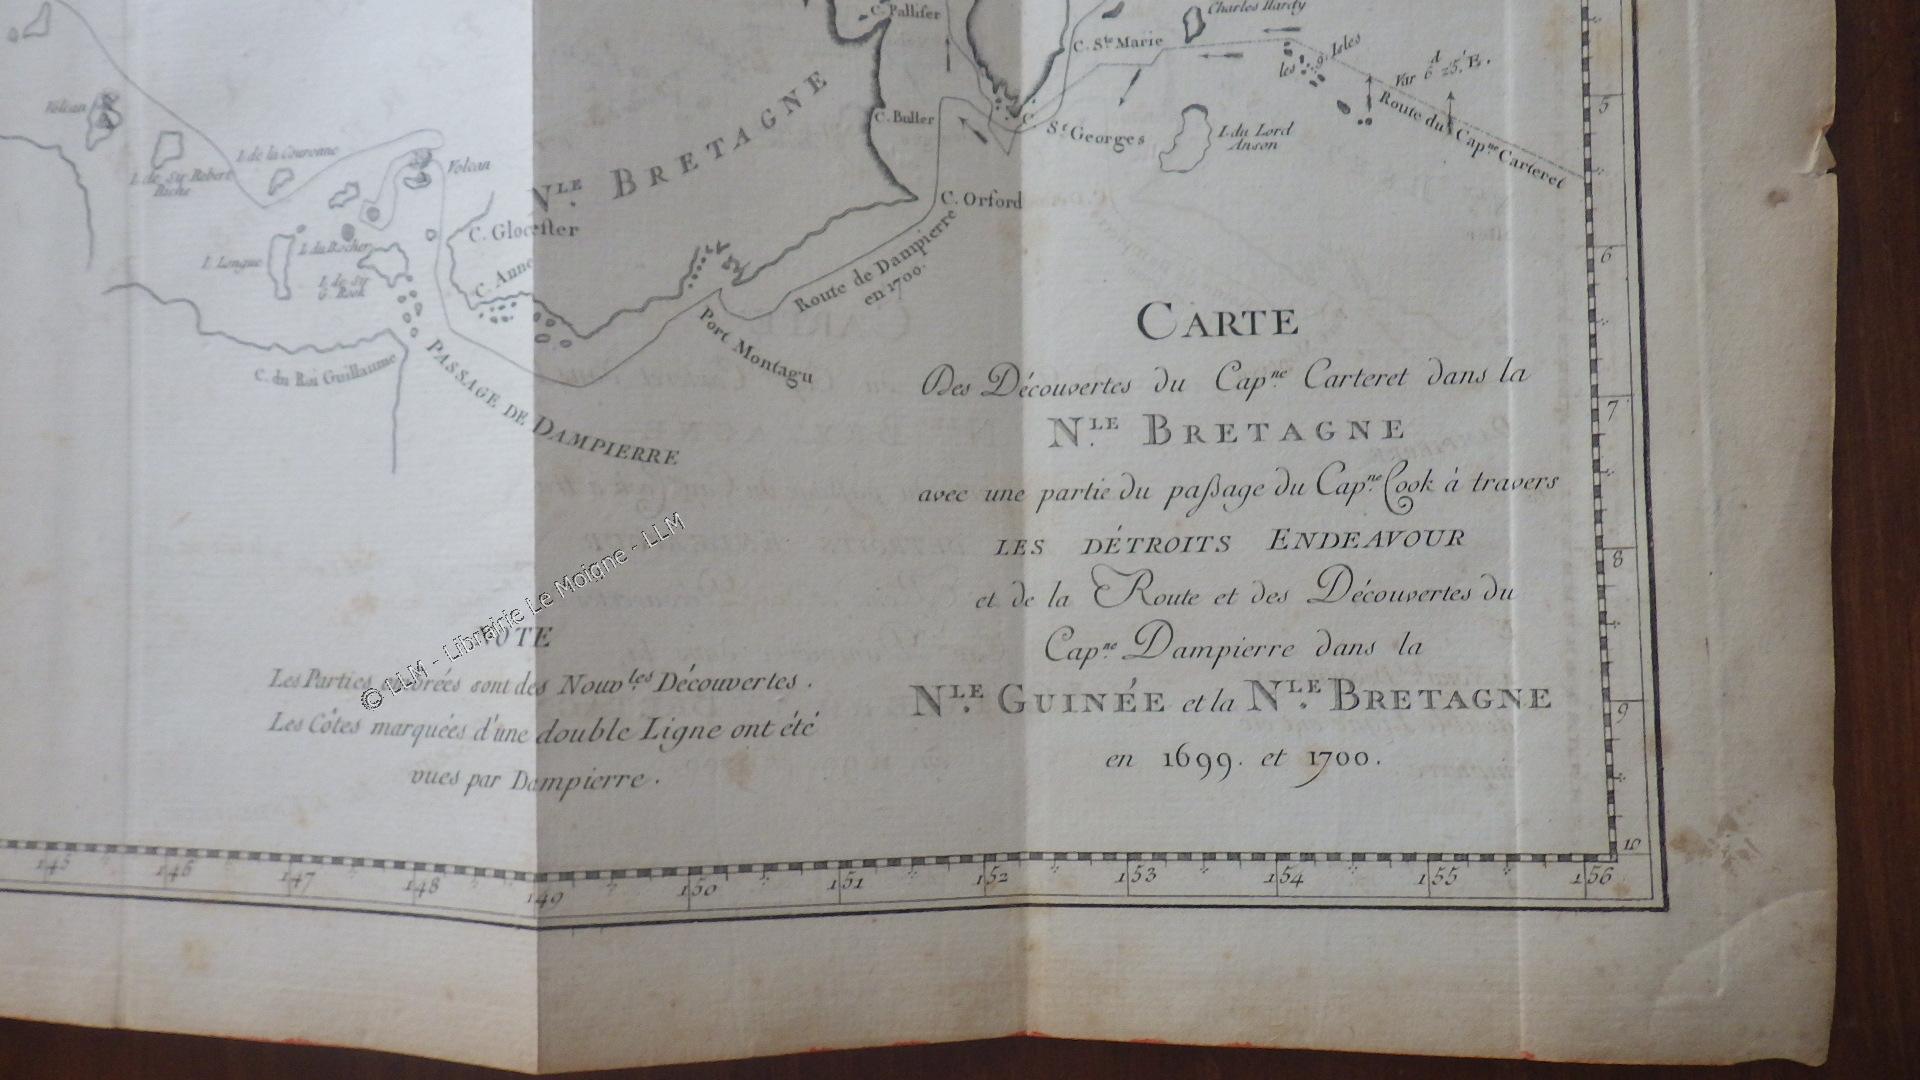 C. Pallifer
Charles Hardy
C. Ste. Marie
les 9. Isles
Var 6d 25' E.
Route du Capne Carteret
Volcan
C. Buller
C. St. Georges
I. du Lord
Anson
I. de la Couronne
I. de Sir Robert
Volcan
Nle. BRETAGNE
C. Orford
C. Glocester
I. Longue
I. du Rocher
I. de Sir
G. Rook
C. Anne
Route de Dampierre
en 1700.
Port Montagu
C. du Roi Guillaume
PASSAGE DE DAMPIERRE
CARTE
Des Découvertes du Capne. Carteret dans la
Nle. BRETAGNE
avec une partie du passage du Capne. Cook à travers
LES DÉTROITS ENDEAVOUR
et de la Route et des Découvertes du
Capne. Dampierre dans la
Nle. GUINÉE et la Nle. BRETAGNE
en 1699. et 1700.
NOTE
Les Parties ombrées sont des Nouvles. Découvertes.
Les Côtes marquées d'une double Ligne ont été
vues par Dampierre.
© LLM - Librairie Le Moigne - LLM
5
6
7
8
9
10
145 146 147 148 149 150 151 152 153 154 155 156